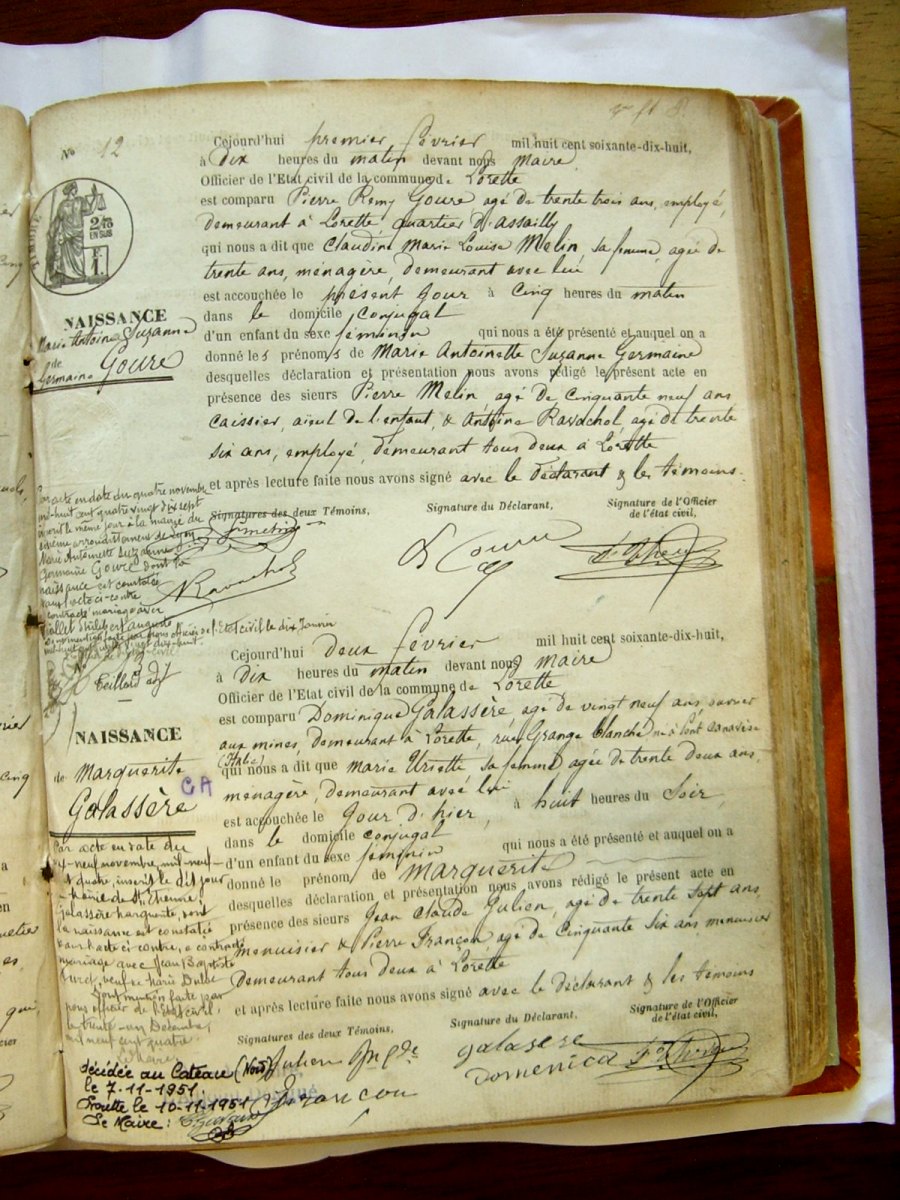 No 12
Cejourd'hui premier février mil huit cent soixante-dix-huit,
à dix heures du matin devant nous Maire
Officier de l'Etat civil de la commune de Lorette
est comparu Pierre Remy Goure agé de trente trois ans, employé,
demeurant à Lorette, quartier d'assailly
qui nous a dit que Claudine Marie Louise Melin, sa femme, agée de
trente ans, ménagère, demeurant avec lui
est accouchée le présent jour à cinq heures du matin
dans le domicile conjugal
d'un enfant du sexe féminin qui nous a été présenté et auquel on a
donné les prénoms de Marie Antoinette Suzanne Germaine
desquelles déclaration et présentation nous avons rédigé le présent acte en
présence des sieurs Pierre Melin, agé de cinquante neuf ans
caissier, aïeul de l'enfant, & Antoine Ravachol, agé de trente
six ans, employé, demeurant tous deux à Lorette
et après lecture faite nous avons signé avec le déclarant & les témoins.
Signatures des deux Témoins,
Signature du Déclarant,
Signature de l'Officier
de l'état civil,
Ravachol
TIMBRE
2/10
EN SUS
1F.
NAISSANCE
Marie Antoine Suzanne
de
Germaine Goure
Par acte en date du quatre novembre
mil-huit cent quatre vingt dix sept
inscrit le même jour à la mairie du
arrondissement de Lyon
Marie Antoinette Suzanne
Germaine Goure dont la
naissance est constatée
dans l'acte ci-contre
contracté mariage avec
Philibert Auguste
mention faite par nous officier de l'Etat civil le dix Janvier
Teillard adjt
Cejourd'hui deux février mil huit cent soixante-dix-huit,
à dix heures du matin devant nous Maire
Officier de l'Etat civil de la commune de Lorette
est comparu Dominique Galassère agé de vingt neuf ans, ouvrier
aux mines, demeurant à Lorette, rue Grange Blanche né à Pont Canavèse
(Italie)
qui nous a dit que Marie Uriette sa femme agée de trente deux ans,
ménagère, demeurant avec lui
est accouchée le jour d'hier, à huit heures du soir,
dans le domicile conjugal
d'un enfant du sexe féminin qui nous a été présenté et auquel on a
donné le prénom de Marguerite
desquelles déclaration et présentation nous avons rédigé le présent acte en
présence des sieurs Jean Claude Julien, agé de trente sept ans
menuisier & Pierre Françon, agé de cinquante six ans menuisier
demeurant tous deux à Lorette
et après lecture faite nous avons signé avec le déclarant & les témoins
Signatures des deux Témoins,
Signature du Déclarant,
Signature de l'Officier
de l'état civil,
Julien
galasere
Domenica
Françon
NAISSANCE
de Marguerite
Galassère
GA
Par acte en date du
dix-neuf novembre, mil-neuf-
cent quatre, inscrit le dit jour
mairie de St Etienne,
Galassère Marguerite, dont
la naissance est constatée
dans l'acte ci-contre, a contracté
mariage avec Jean Baptiste
veuf de Marie
Dont mention faite par
nous officier de l'état civil,
le trente-un Décembre,
mil neuf cent quatre
Le Maire
décédée au Cateau (Nord)
le 7-11-1951.
Lorette le 10-11-1951
Le Maire: